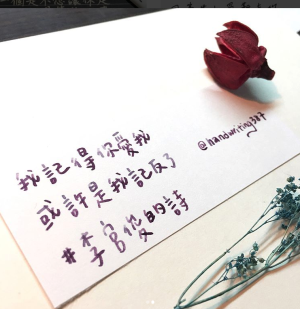 我記得你愛我
或許是我記反了
#李宮俊的詩
@handwriting327